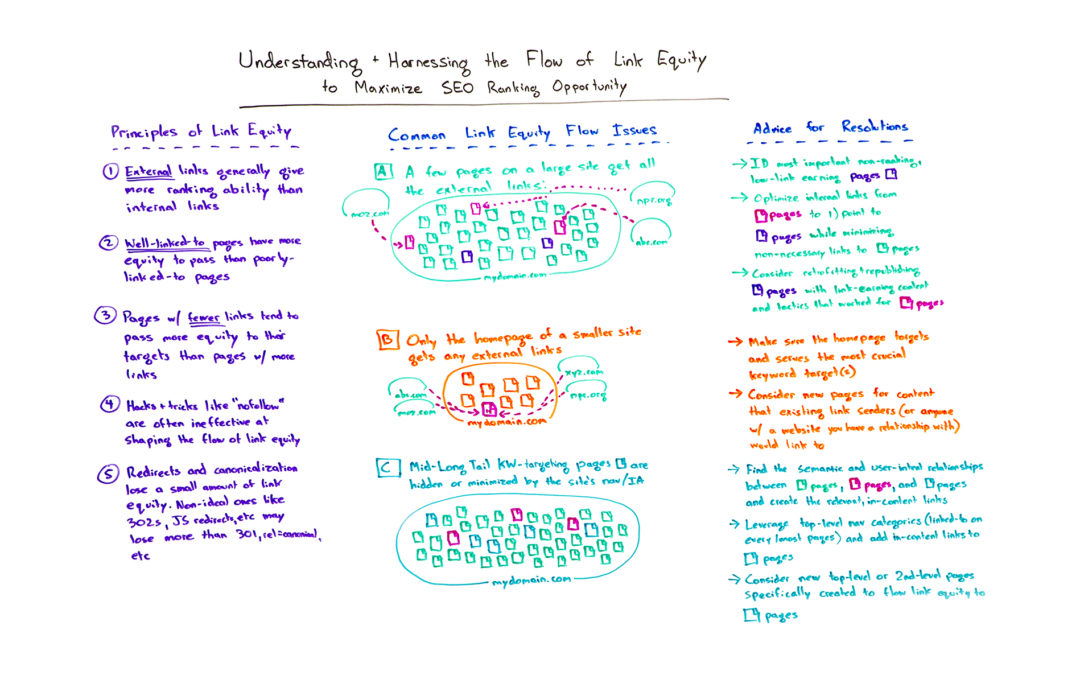 Understanding + Harnessing the Flow of Link Equity
to Maximize SEO Ranking Opportunity
Principles of Link Equity
① External links generally give
more ranking ability than
internal links
② Well-linked-to pages have more
equity to pass than poorly-
linked-to pages
③ Pages w/ fewer links tend to
pass more equity to their
targets than pages w/ more
links
④ Hacks + tricks like "nofollow"
are often ineffective at
shaping the flow of link equity
⑤ Redirects and canonicalization
lose a small amount of link
equity. Non-ideal ones like
302s, JS redirects, etc may
lose more than 301, rel=canonical,
etc
Common Link Equity Flow Issues
A A few pages on a large site get all
the external links:
moz.com
npr.org
abc.com
mydomain.com
B Only the homepage of a smaller site
gets any external links
abc.com
moz.com
xyz.com
npr.org
mydomain.com
C Mid-Long Tail KW-targeting pages are
hidden or minimized by the site's nav/IA
mydomain.com
Advice for Resolutions
→ ID most important non-ranking,
low-link earning pages
→ Optimize internal links from
pages to 1) point to
pages while minimizing
non-necessary links to pages
→ Consider retrofitting + republishing
pages with link-earning content
and tactics that worked for pages
→ Make sure the homepage targets
and serves the most crucial
keyword target(s)
→ Consider new pages for content
that existing link senders (or anyone
w/ a website you have a relationship with)
would link to
→ Find the semantic and user-intent relationships
between pages, pages, and pages
and create the relevant, in-content links
→ Leverage top-level nav categories (linked-to on
every/most pages) and add in-content links to
pages
→ Consider new top-level or 2nd-level pages
specifically created to flow link equity to
pages